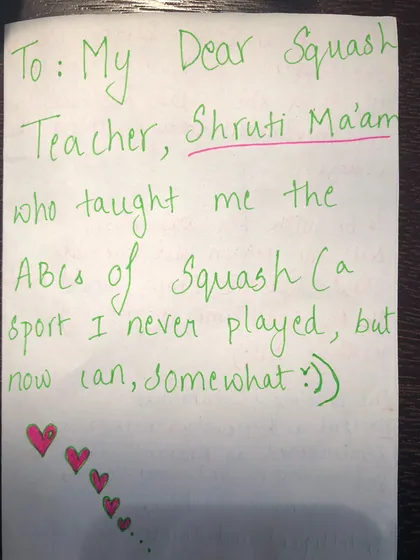 To: My Dear Squash
Teacher, Shruti Ma'am
who taught me the
ABCs of Squash (a
sport I never played, but
now can, somewhat :))